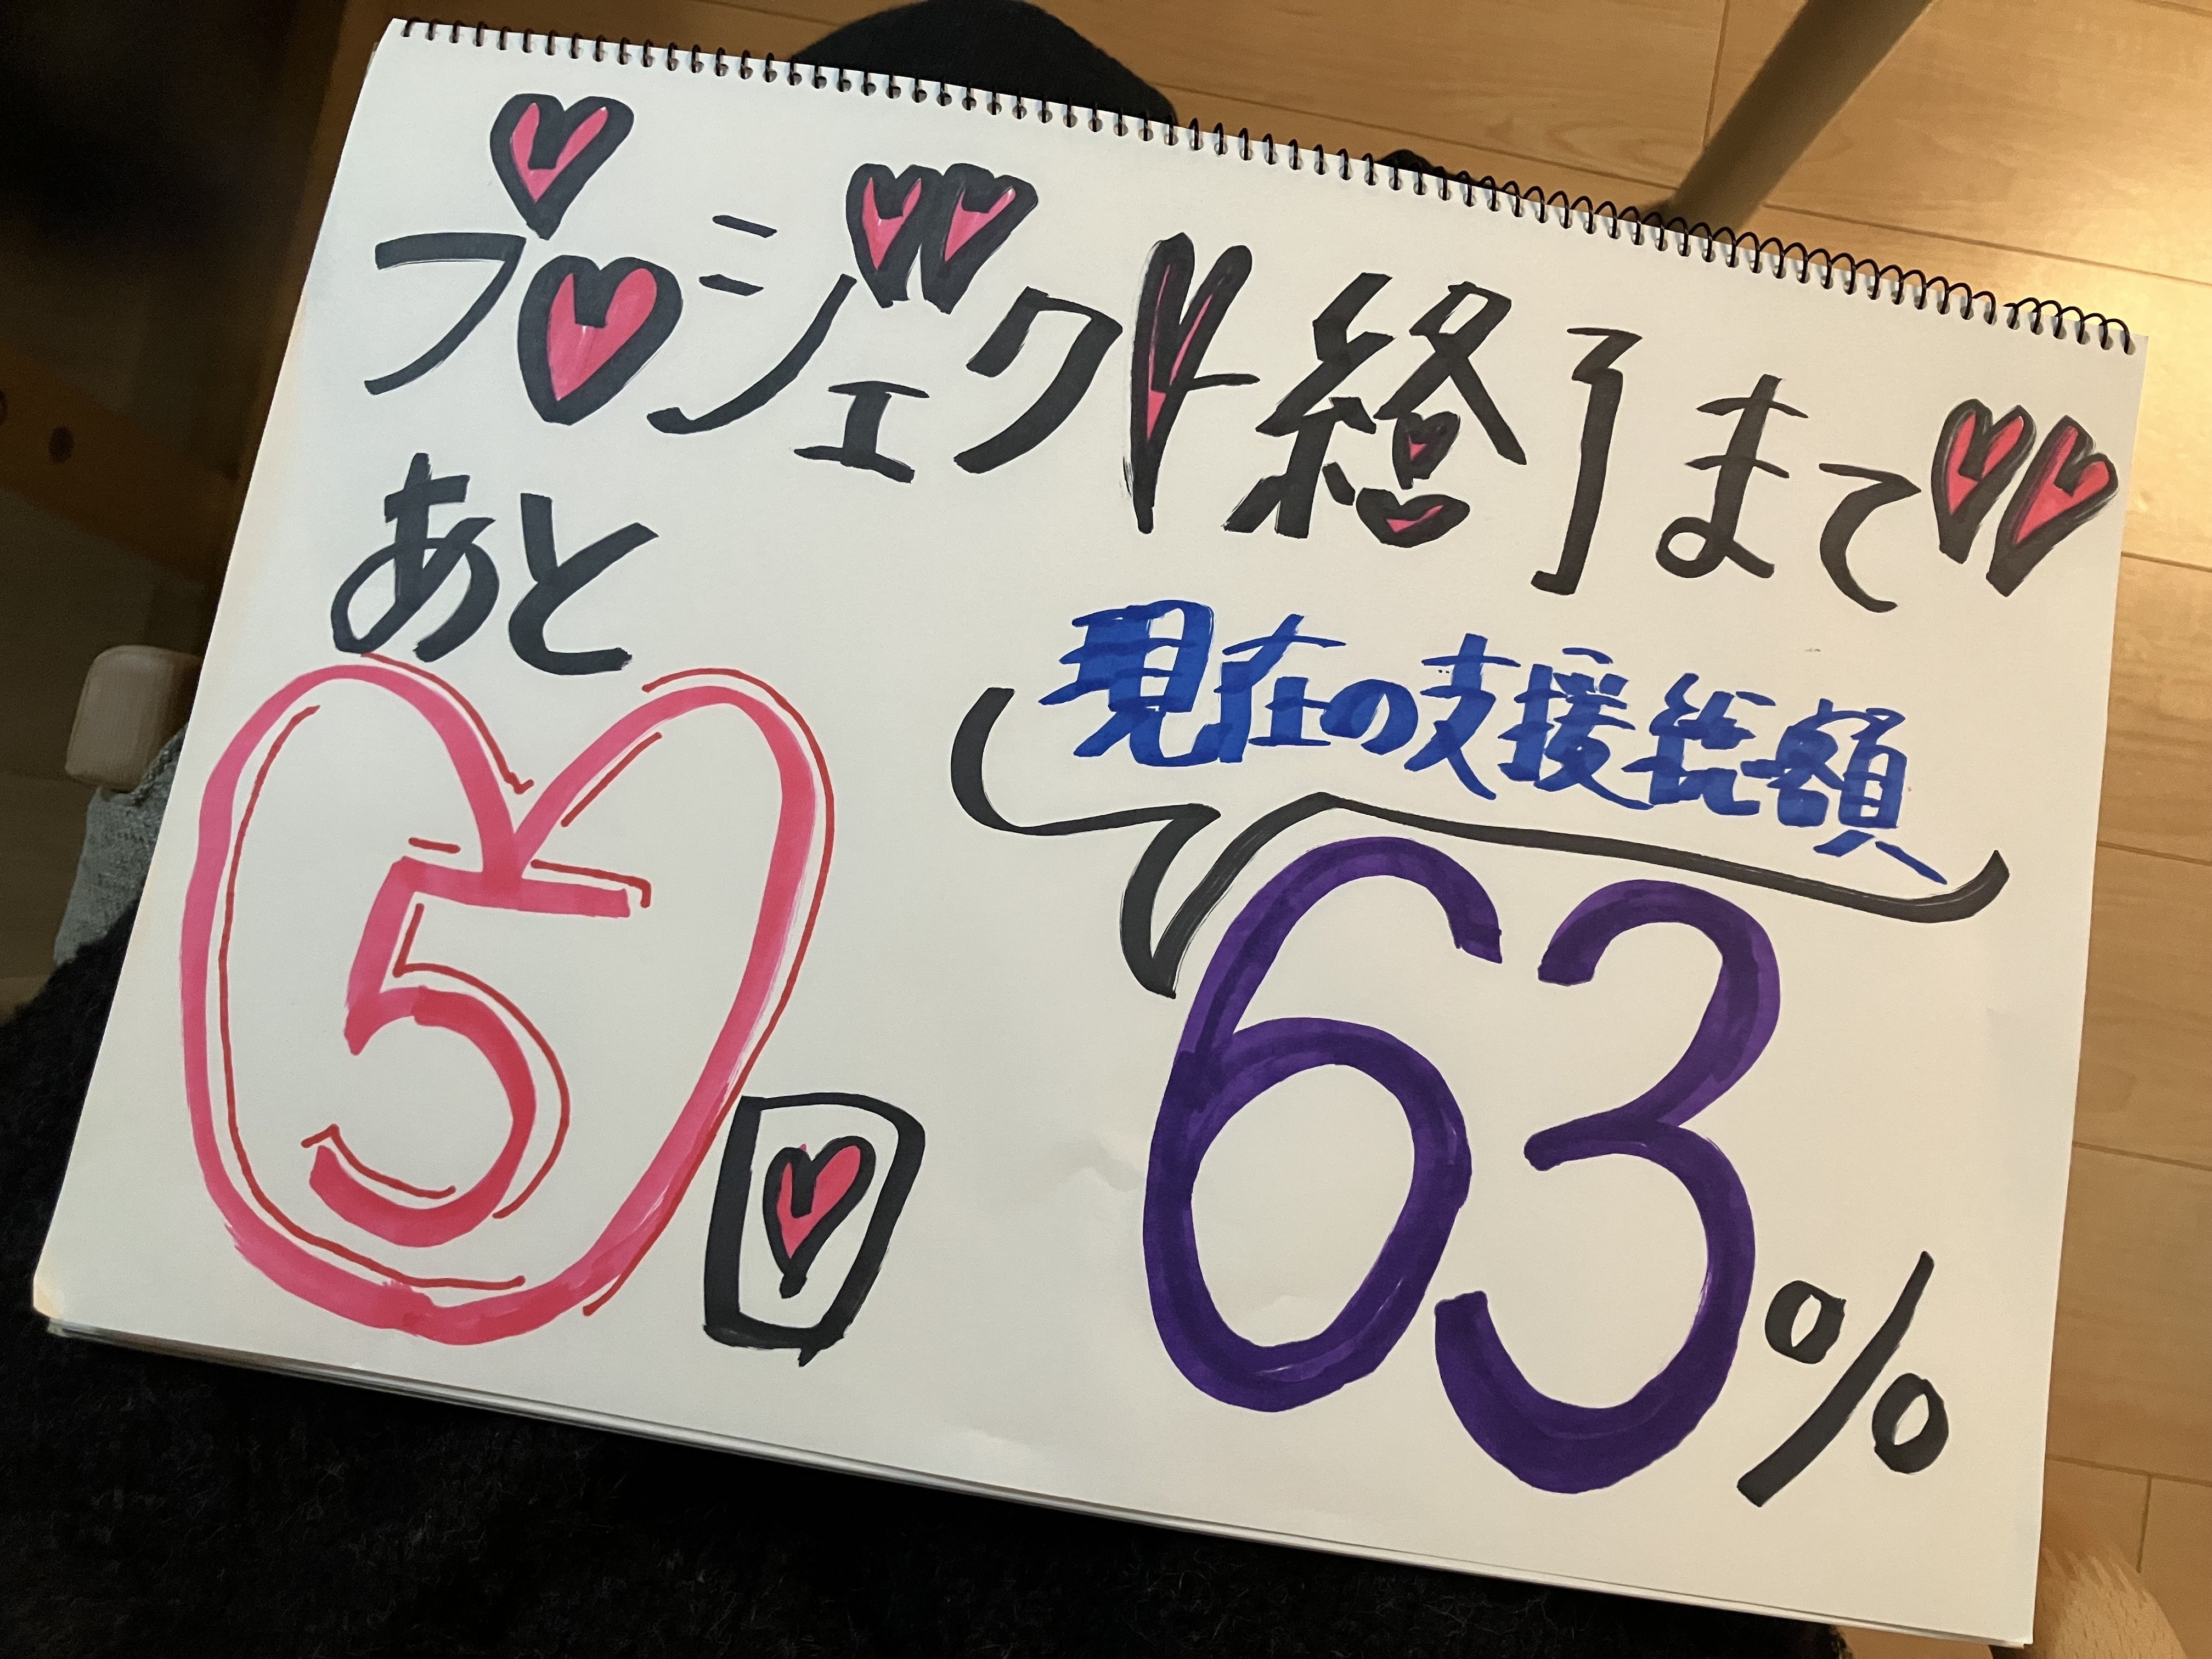 プロジェクト終了まで
あと
5日
現在の支援総額
63%